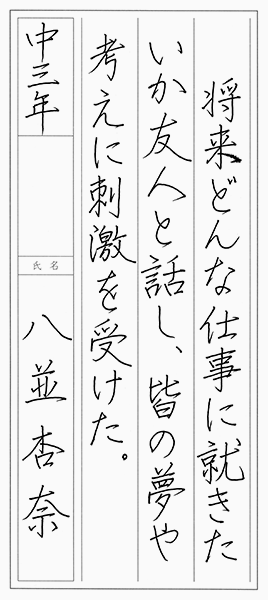 将来どんな仕事に就きた
いか友人と話し、皆の夢や
考えに刺激を受けた。
中三年
氏名
八並杏奈